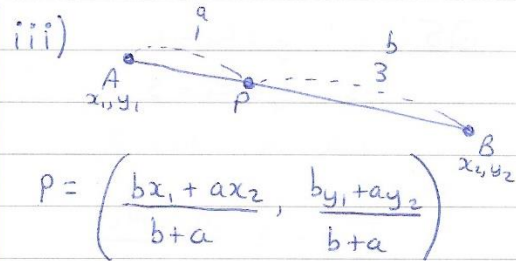 iii)
a
1
b
3
A
x₁, y₁
P
B
x₂, y₂
P = ( (bx₁ + ax₂)/(b+a) , (by₁ + ay₂)/(b+a) )